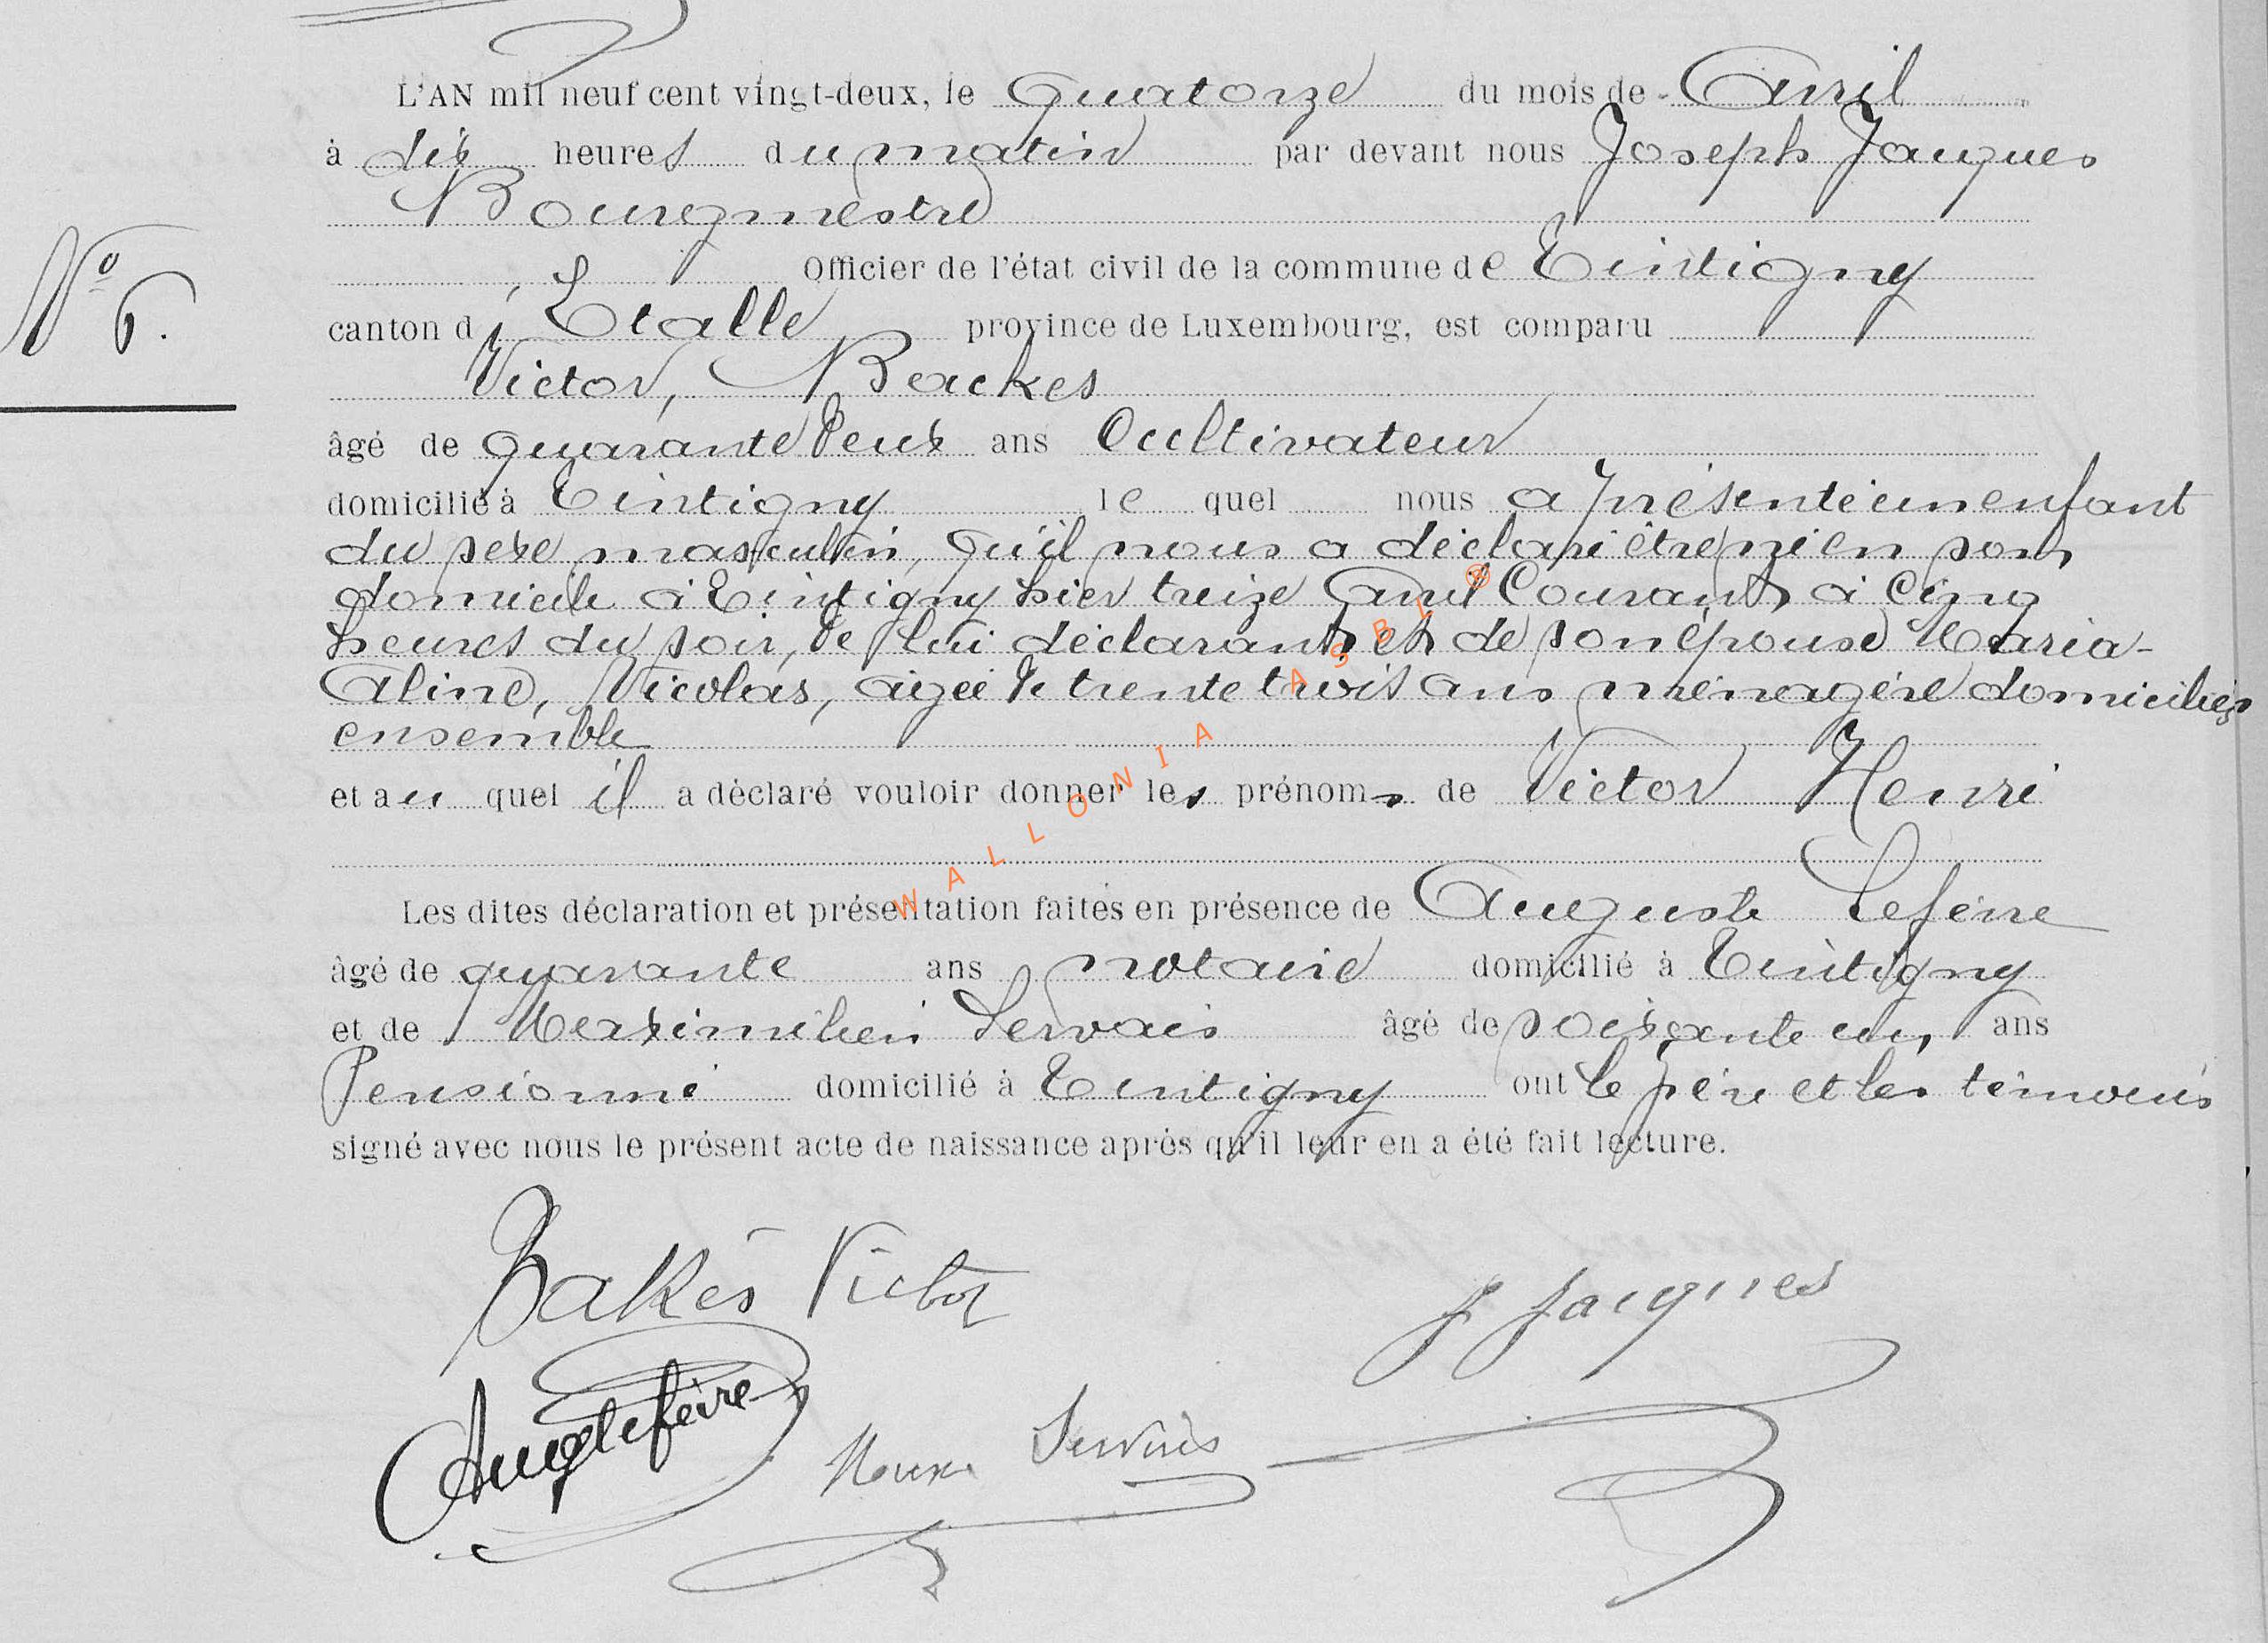 L'AN mil neuf cent vingt-deux, le quatorze du mois de Avril
à dix heures du matin par devant nous Joseph Jacques
Bourgmestre
N° 6.
Officier de l'état civil de la commune de Tintigny
canton d'Etalle province de Luxembourg, est comparu
Victor, Backes
âgé de quarante deux ans Cultivateur
domicilié à Tintigny le quel nous a présenté un enfant
du sexe masculin, qu'il nous a déclaré être né en son
domicile à Tintigny hier treize Avril Courant à Cinq
heures du soir, de lui déclarant et de son épouse Maria-
Aline, Nicolas, agée de trente trois ans ménagère domiciliés
ensemble
et au quel il a déclaré vouloir donner les prénoms de Victor Henri
Les dites déclaration et présentation faites en présence de Auguste Lefèvre
âgé de quarante ans notaire domicilié à Tintigny
et de Maximilien Servais âgé de soixante un ans
Pensionné domicilié à Tintigny ont le père et les témoins
signé avec nous le présent acte de naissance après qu'il leur en a été fait lecture.
Bakès Victor
J Jacques
Aug Lefèvre
Servais
WALLONIA ASBL ®